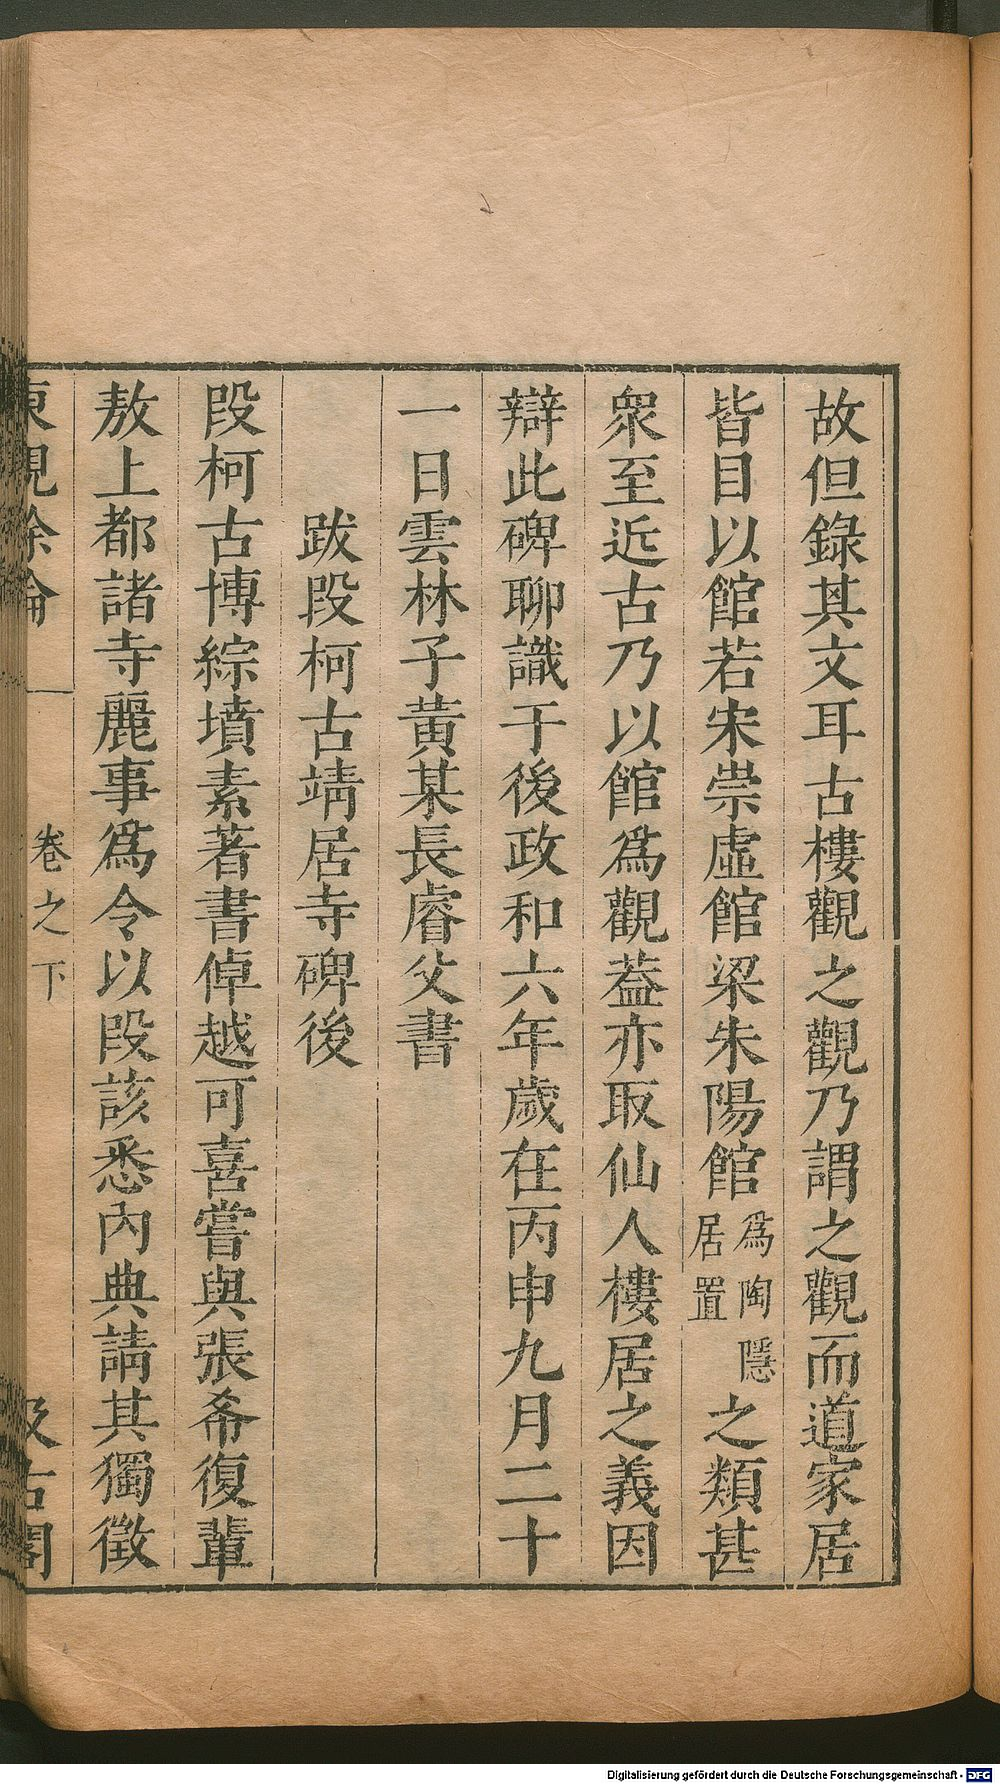 故但錄其文耳古樓觀之觀乃謂之觀而道家居
皆目以館若宋崇虛館梁朱陽館為陶隱居置之類甚
衆至近古乃以館爲觀葢亦取仙人樓居之義因
辯此碑聊識于後政和六年歲在丙申九月二十
一日雲林子黃某長睿父書
跋段柯古靖居寺碑後
段柯古博綜墳素著書倬越可喜嘗與張希復輩
敖上都諸寺麗事爲令以段該悉內典請其獨徵
東觀餘論
卷之下
汲古閣
Digitalisierung gefördert durch die Deutsche Forschungsgemeinschaft - DFG